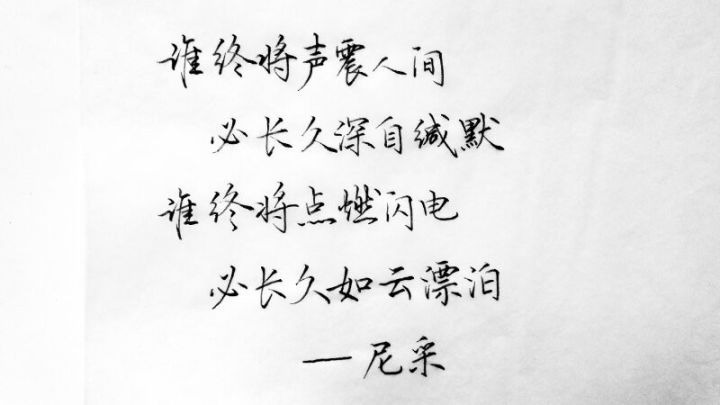 谁终将声震人间
必长久深自缄默
谁终将点燃闪电
必长久如云漂泊
— 尼采